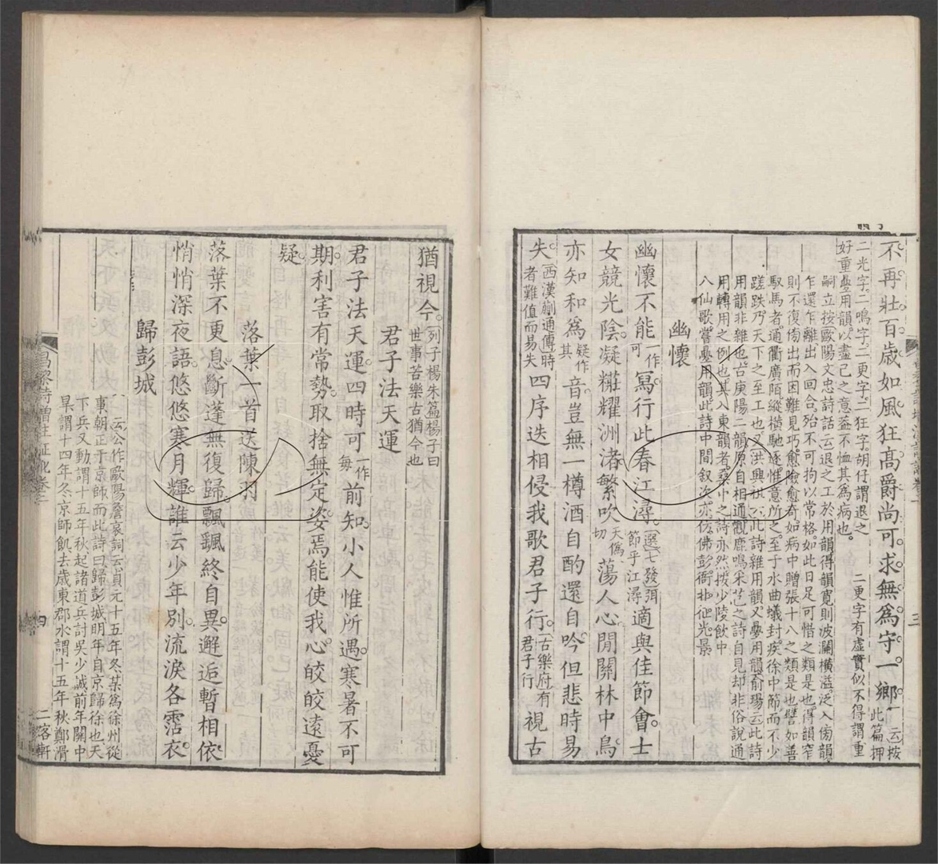 不再壯百歲如風狂高爵尚可求無爲守一鄉
一云按
此篇押
二光字二鳴字二更字二狂字胡仔謂退之
好重疊用韻以盡己之意蓋不恤其爲病也
二更字有虛實似不得謂重
嗣立按歐陽文忠詩話云退之工於用韻得韻寬則波瀾橫溢泛入傍韻
乍還乍離出入回合殆不可拘以常格如此日足可惜之類是也得韻窄
則不復傍出而因難見巧愈險愈奇如病中贈張十八之類是也譬如善
馭馬者通衢廣陌縱橫馳逐惟意所之至于水曲蟻封疾徐中節而不少
蹉跌乃天下之至工也又洪興祖云此詩雜用韻又疊用韻俞瑒云此詩
用韻非雜也古庚陽二韻原自相通觀鹿鳴采芑之詩自見却非俗說通
用轉用之例也其入東韻者中之詩亦然按少陵飲中
八仙歌嘗疊用韻此詩中間叙次亦彷彿彭衙北征光景
幽懷
幽懷不能一作可寫行此春江潯選七發弭節乎江潯適與佳節會士
女競光陰凝糚耀洲渚繁吹天僞切蕩人心閒關林中鳥
亦知和爲疑作其音豈無一樽酒自酌還自吟但悲時易
失西漢蒯通傳時者難值而易失四序迭相侵我歌君子行古樂府有君子行視古
猶視今列子楊朱篇楊子曰世事苦樂古猶今也
君子法天運
君子法天運四時可一作每前知小人惟所遇寒暑不可
期利害有常勢取捨無定姿焉能使我心皎皎遠憂
疑
落葉一首送陳羽
落葉不更息斷蓬無復歸飄颻終自異邂逅暫相依
悄悄深夜語悠悠寒月輝誰云少年別流淚各霑衣
歸彭城
一云公作歐陽詹哀詞云貞元十五年冬某爲徐州從
事朝正于京師而此詩曰歸彭城明年自京歸徐也天
下兵又動謂十五年秋起諸道兵討吳少誠前年關中
旱謂十四年冬京師飢去歲東郡水謂十五年秋鄭滑
昌黎詩增注證訛卷二
四
二客軒